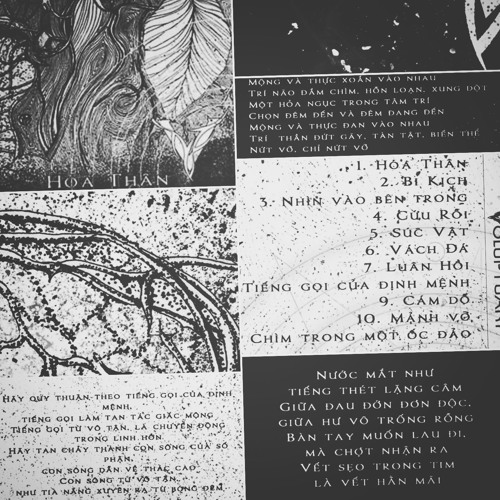 Hóa Thân
Mộng và thực xoắn vào nhau
Trí não đắm chìm, hỗn loạn, xung đột
Một hỏa ngục trong tâm trí
Chọn đêm đến và đêm đang đến
Mộng và thực đan vào nhau
Trí thần đứt gãy, tàn tật, biến thể
Nứt vỡ, chỉ nứt vỡ
1. Hóa Thân
2. Bi Kịch
3. Nhìn vào bên trong
4. Cứu Rỗi
5. Súc Vật
6. Vách Đá
7. Luân Hồi
Tiếng gọi của định mệnh
9. Cám dỗ
10. Mảnh vỡ
Chìm trong một ốc đảo
Hãy quy thuận theo tiếng gọi của định
mệnh,
tiếng gọi làm tan tác giấc mộng
Tiếng gọi từ vô tận, là chuyển động
trong linh hồn
Hãy tan chảy thành con sóng của số
phận,
con sóng dẫn về thác cao
Con sóng từ vô tận
như tia nắng xuyên ra từ bóng đêm
Nước mắt như
tiếng thét lặng câm
Giữa đau đớn đơn độc,
giữa hư vô trống rỗng
Bàn tay muốn lau đi,
mà chợt nhận ra
Vết sẹo trong tim
là vết hằn mãi